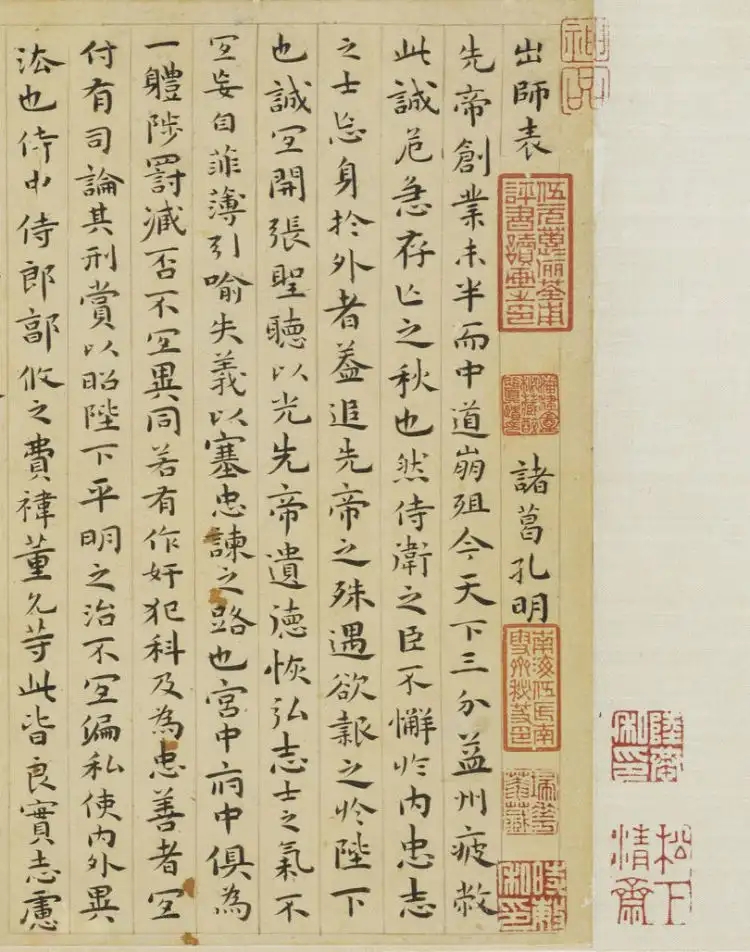 松下清齋
陸恭私印
出師表 諸葛孔明
伍元蕙儷荃甫評書讀畫之印
南海伍氏南雪齋秘笈印
先帝創業未半而中道崩殂今天下三分益州疲敝
此誠危急存亡之秋也然侍衛之臣不懈於内忠志
之士忘身於外者蓋追先帝之殊遇欲報之於陛下
也誠冝開張聖聽以光先帝遺德恢弘志士之氣不
冝妄自菲薄引喻失義以塞忠諫之路也宮中府中俱為
一體陟罰臧否不冝異同若有作奸犯科及為忠善者冝
付有司論其刑賞以昭陛下平明之治不冝偏私使内外異
法也侍中侍郎郭攸之費禕董允等此皆良實志慮